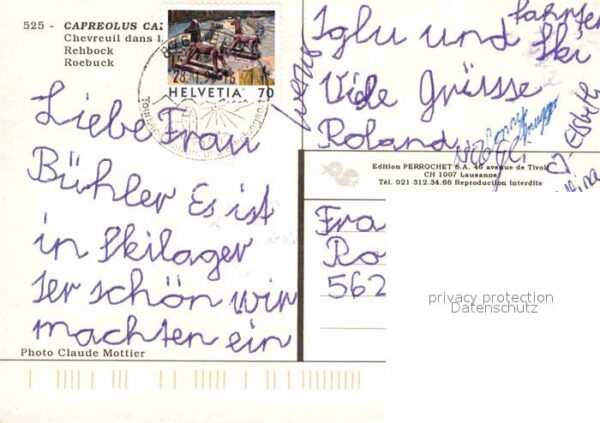 525 - CAPREOLUS CA
Chevreuil dans l
Rehbock
Roebuck
HELVETIA 70
Liebe Frau
Bühler Es ist
in Skilager
ser schön wir
machten ein
Photo Claude Mottier
Iglu und
fahrten
Ski
Viele Grüsse
Roland
Edition PERROCHET S.A. 46 avenue de Tivol
CH 1007 Lausanne
Tél. 021 312.34.66 Reproduction interdite
Fra
Ro
562
privacy protection
Datenschutz